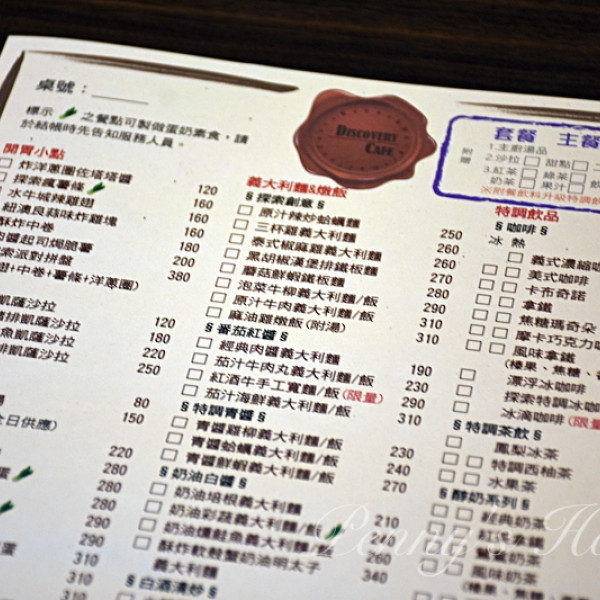 桌號：
標示 之餐點可製做蛋奶素食，請
於結帳時先告知服務人員。
開胃小點
炸洋蔥圈佐塔塔醬 120
探索瘋薯條 160
水牛城辣雞翅 160
紐澳良蒜味炸雞塊 160
酥炸中卷 180
肉醬起司焗脆薯 200
索派對拼盤 380
翅+中卷+薯條+洋蔥圈)
凱薩沙拉 120
排凱薩沙拉 180
魚凱薩沙拉 220
排凱薩沙拉 250
80
全日供應) 150
220
280
280
280
290
290
310
310
DISCOVERY
CAFE
義大利麵&燉飯
§ 探索創意 §
原汁辣炒蛤蠣麵 250
三杯雞義大利麵 260
泰式椒麻雞義大利麵 260
黑胡椒漢堡排鐵板麵 270
蘑菇鮮蝦鐵板麵 280
泡菜牛柳義大利麵/飯 290
原汁牛肉義大利麵/飯 310
麻油雞燉飯(附湯) 310
§ 蕃茄紅醬 §
經典肉醬義大利麵 190
茄汁牛肉丸義大利麵/飯 230
紅酒牛手工寬麵/飯(限量) 290
茄汁海鮮義大利麵/飯 310
§ 特調青醬 §
青醬雞柳義大利麵/飯 230
青醬蛤蠣義大利麵/飯 240
青醬鮮蝦義大利麵/飯 270
§ 奶油白醬 §
奶油培根義大利麵 210
奶油彩蔬義大利麵/飯 240
奶油燻鮭魚義大利麵/飯 260
酥炸軟殼蟹奶油明太子 340
義大利麵
§ 白酒清炒 §
套餐 主餐
附贈
1.主廚湯品
2.沙拉 甜點
3.紅茶 綠茶
奶茶 果汁
※附餐飲料升級特調飲
特調飲品
§ 咖啡 §
冰 熱
義式濃縮咖
美式咖啡
卡布奇諾
拿鐵
焦糖瑪奇朵
摩卡巧克力咖
風味拿鐵
(榛果、焦糖、香
漂浮冰咖啡
探索特調冰咖
冰滴咖啡(限量
§ 特調茶飲 §
鳳梨冰茶
特調西柚茶
水果茶
§ 醇奶系列 §
經典奶茶
紅茶拿鐵
鴛鴦奶茶
風味奶茶
(榛果、焦糖、
Penny's Ho